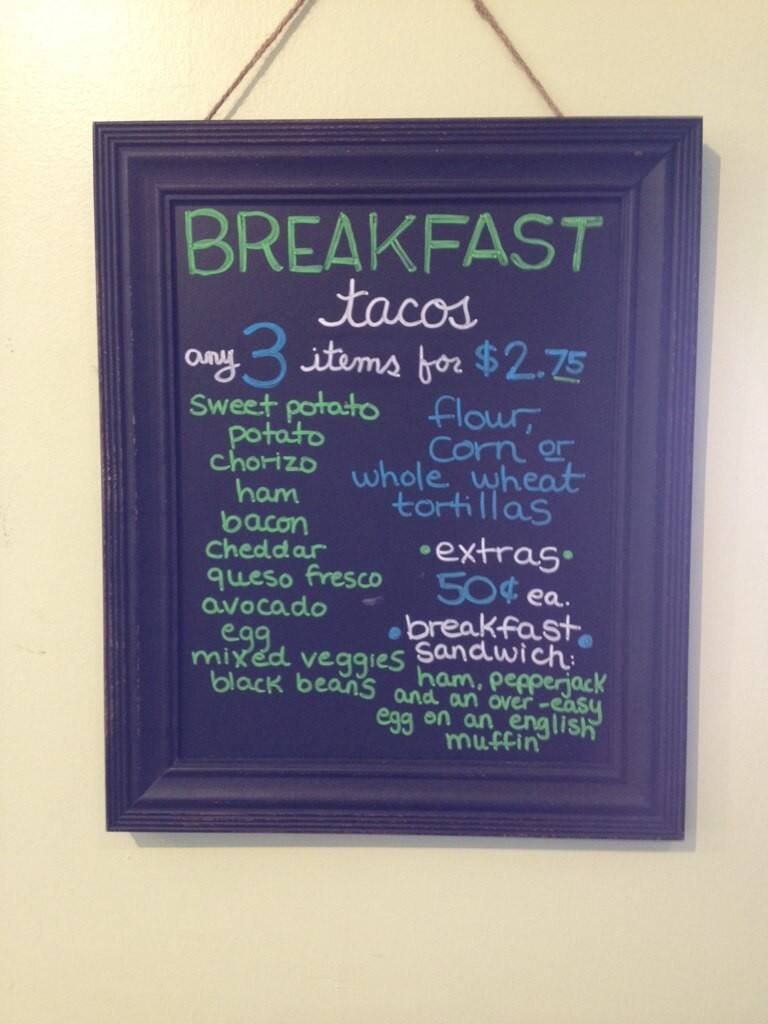 BREAKFAST
tacos
any 3 items for $2.75
sweet potato
potato
chorizo
ham
bacon
cheddar
queso fresco
avocado
egg
mixed veggies
black beans
flour,
corn or
whole wheat
tortillas
•extras•
50¢ ea.
•breakfast•
sandwich:
ham, pepperjack
and an over-easy
egg on an english
muffin